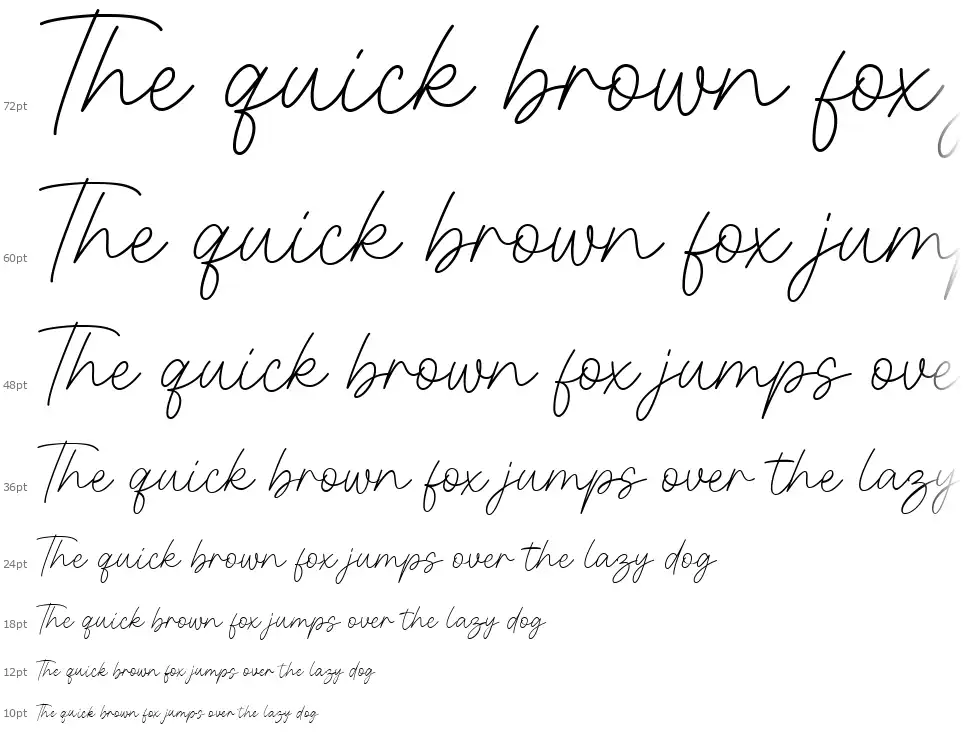 72pt The quick brown fox
60pt The quick brown fox jump
48pt The quick brown fox jumps ove
36pt The quick brown fox jumps over the lazy
24pt The quick brown fox jumps over the lazy dog
18pt The quick brown fox jumps over the lazy dog
12pt The quick brown fox jumps over the lazy dog
10pt The quick brown fox jumps over the lazy dog